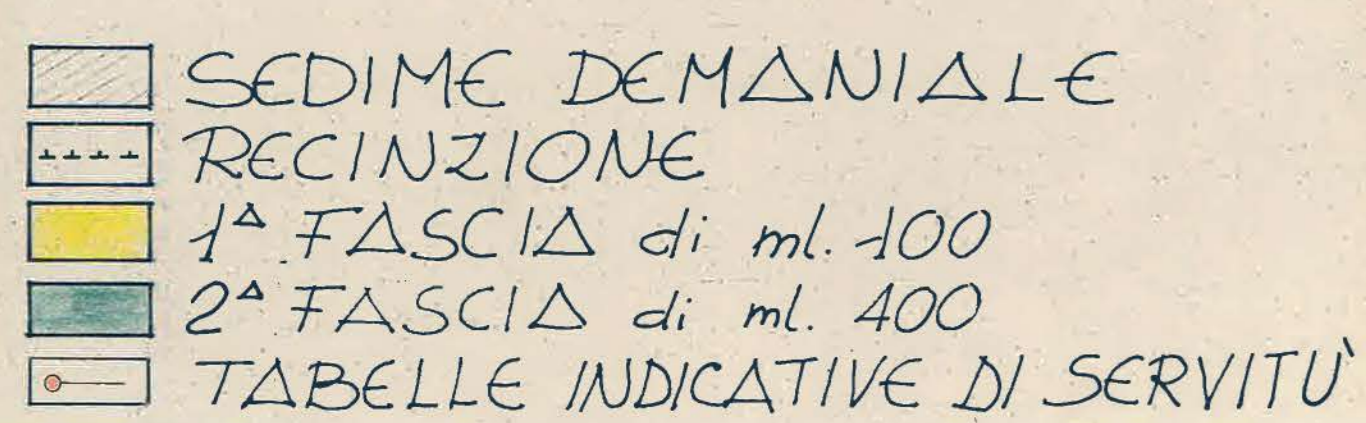 SEDIME DEMANIALE
RECINZIONE
1ᴬ FASCIA di ml. 100
2ᴬ FASCIA di ml. 400
TABELLE INDICATIVE DI SERVITÙ